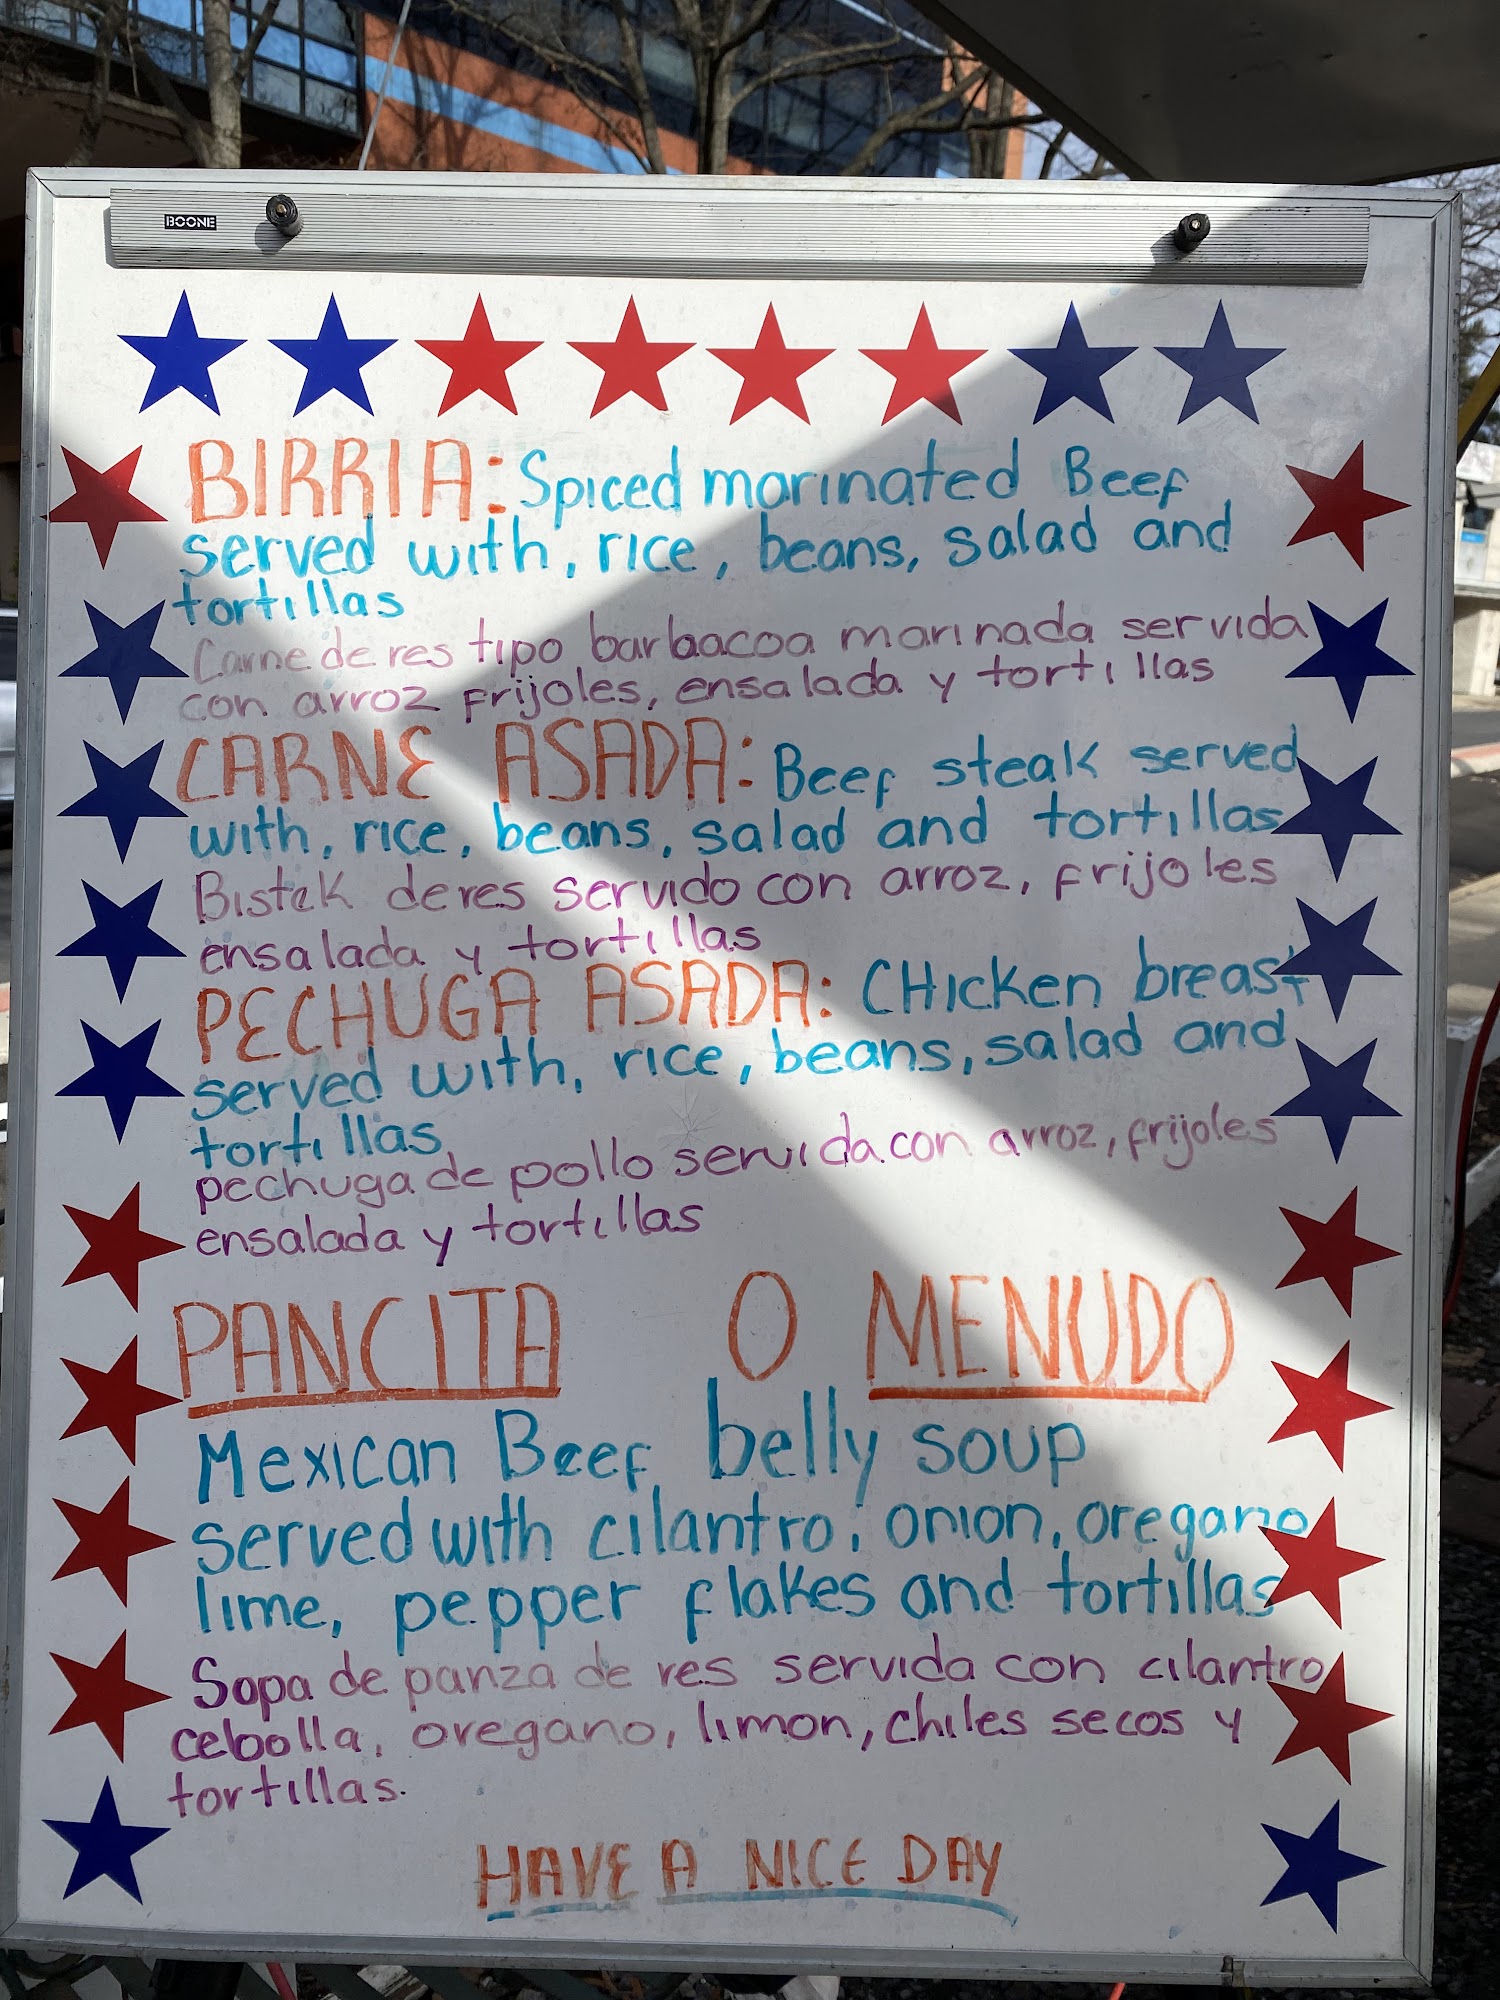 BOONE
BIRRIA: Spiced marinated Beef
served with, rice, beans, salad and
tortillas
Carne de res tipo barbacoa marinada servida
con arroz frijoles, ensalada y tortillas
CARNE ASADA: Beef steak served
with, rice, beans, salad and tortillas
Bistek de res servido con arroz, frijoles
ensalada y tortillas
PECHUGA ASADA: CHicken breast
served with, rice, beans, salad and
tortillas
pechuga de pollo servida con arroz, frijoles
ensalada y tortillas
PANCITA O MENUDO
Mexican Beef belly soup
served with cilantro, onion, oregano
lime, pepper flakes and tortillas
Sopa de panza de res servida con cilantro
cebolla, oregano, limon, chiles secos y
tortillas.
HAVE A NICE DAY